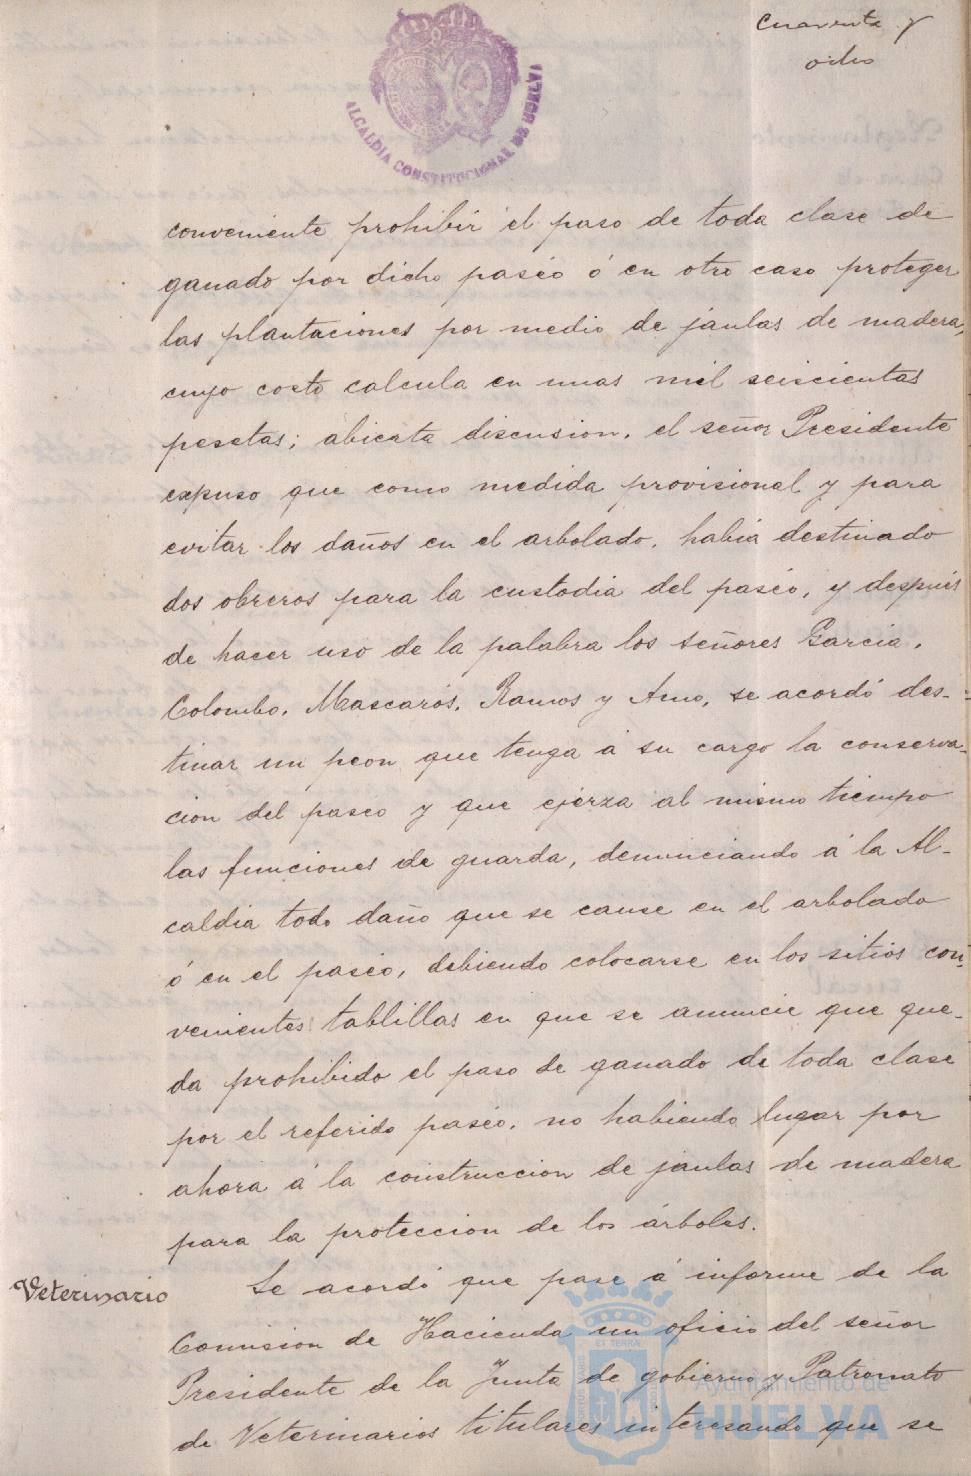 Cuarenta y
ocho
ALCALDIA CONSTITUCIONAL DE HUELVA
conveniente prohibir el paso de toda clase de
ganado por dicho paseo ó en otro caso proteger
las plantaciones por medio de jaulas de madera,
cuyo costo calcula en unas mil seiscientas
pesetas; abierta discusion, el señor Presidente
expuso que como medida provisional y para
evitar los daños en el arbolado, habia destinado
dos obreros para la custodia del paseo, y despues
de hacer uso de la palabra los señores Garcia,
Colombo, Mascarós, Ramos y Amo, se acordó des-
tinar un peon que tenga á su cargo la conserva-
cion del paseo y que ejerza al mismo tiempo
las funciones de guarda, denunciando á la Al-
caldia todo daño que se cause en el arbolado
ó en el paseo, debiendo colocarse en los sitios con-
venientes tablillas en que se anuncie que que-
da prohibido el paso de ganado de toda clase
por el referido paseo, no habiendo lugar por
ahora á la construccion de jaulas de madera
para la proteccion de los árboles.
Veterinario
Se acordó que pase á informe de la
Comision de Hacienda un oficio del señor
Presidente de la Junta de gobierno y Patronato
de Veterinarios titulares interesando que se
Ayuntamiento de
HUELVA